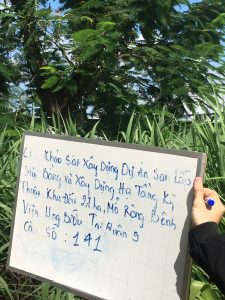 CT Khảo Sát Xây Dựng Dự Án San Lấp
Mặt Bằng và Xây Dựng Hạ Tầng Kỹ
Thuật Khu Đất 22 ha, Mở Rộng Bệnh
Viện Ung Bướu Tại Quận 9
Cọc Số : 141